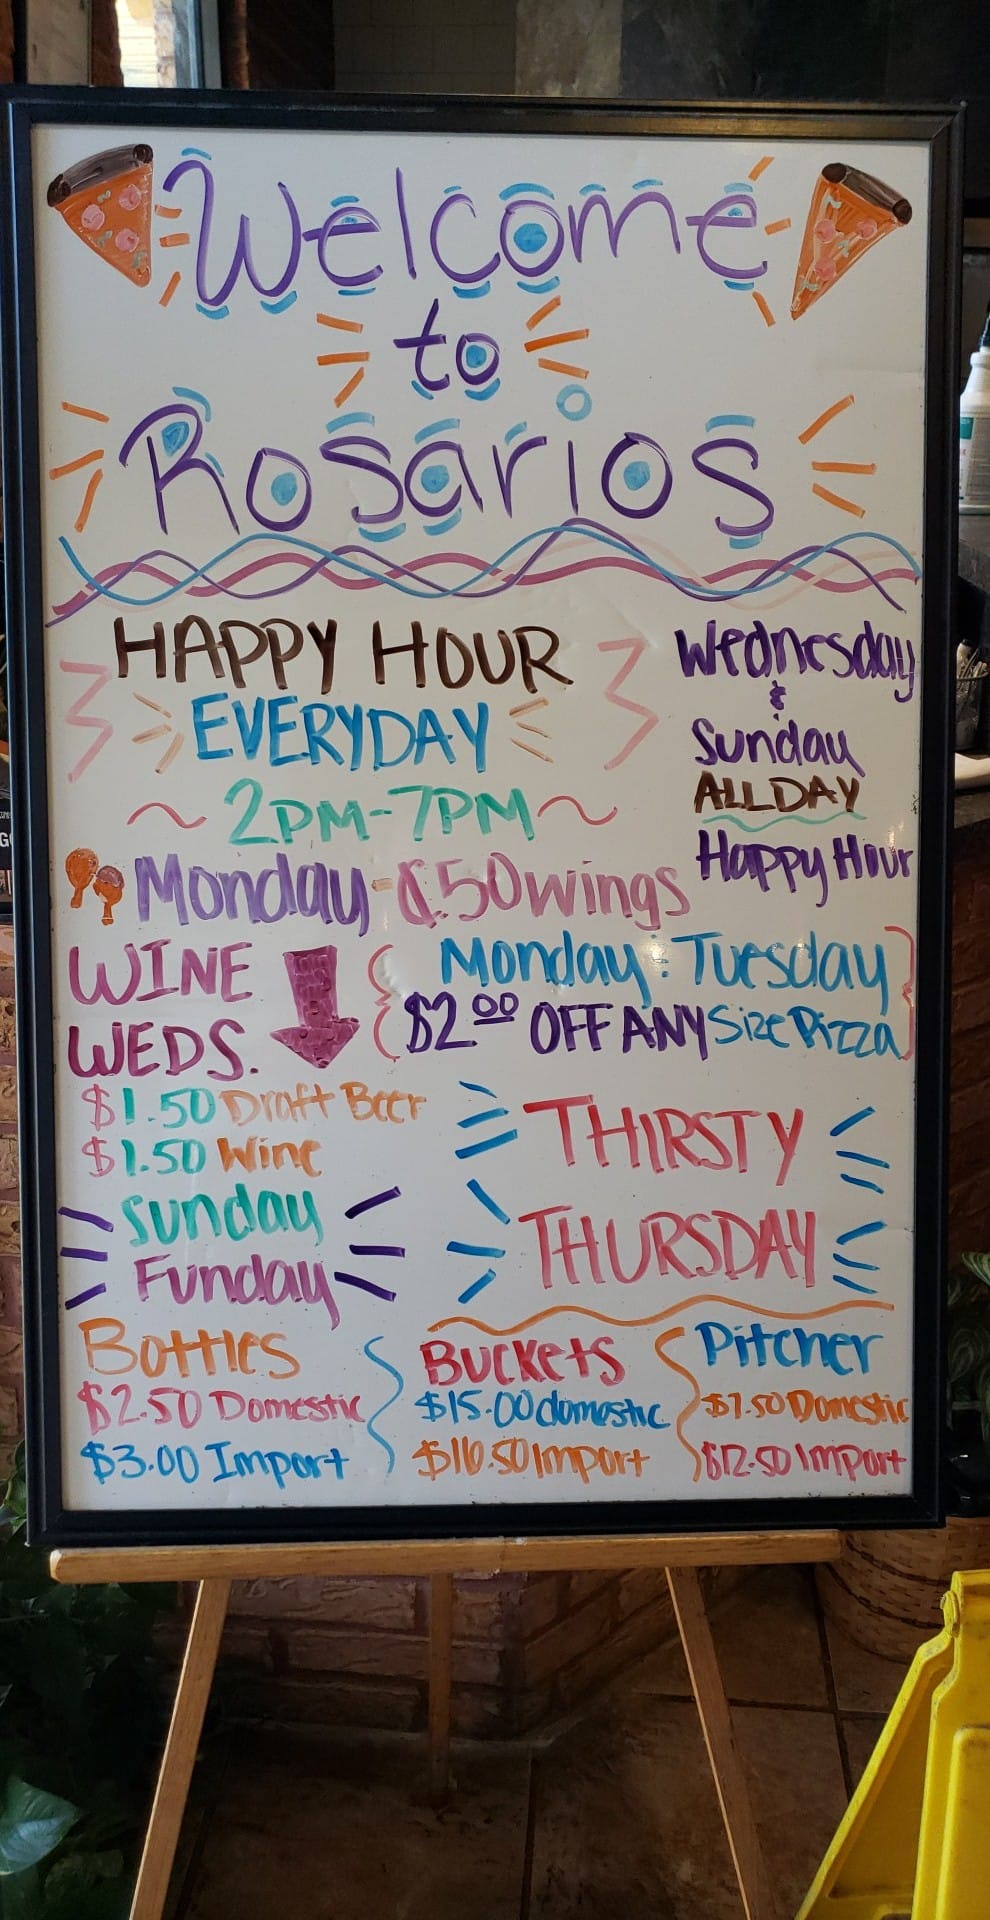 Welcome
to
Rosarios
HAPPY HOUR
EVERYDAY
2PM-7PM
Wednesday
&
Sunday
ALL DAY
Happy Hour
Monday - ¢.50 wings
WINE
WEDS.
$1.50 Draft Beer
$1.50 Wine
Monday : Tuesday
$2.00 OFF ANY Size Pizza
THIRSTY
THURSDAY
Sunday
Funday
Bottles
$2.50 Domestic
$3.00 Import
Buckets
$15.00 domestic
$16.50 Import
Pitcher
$7.50 Domestic
$12.50 Import